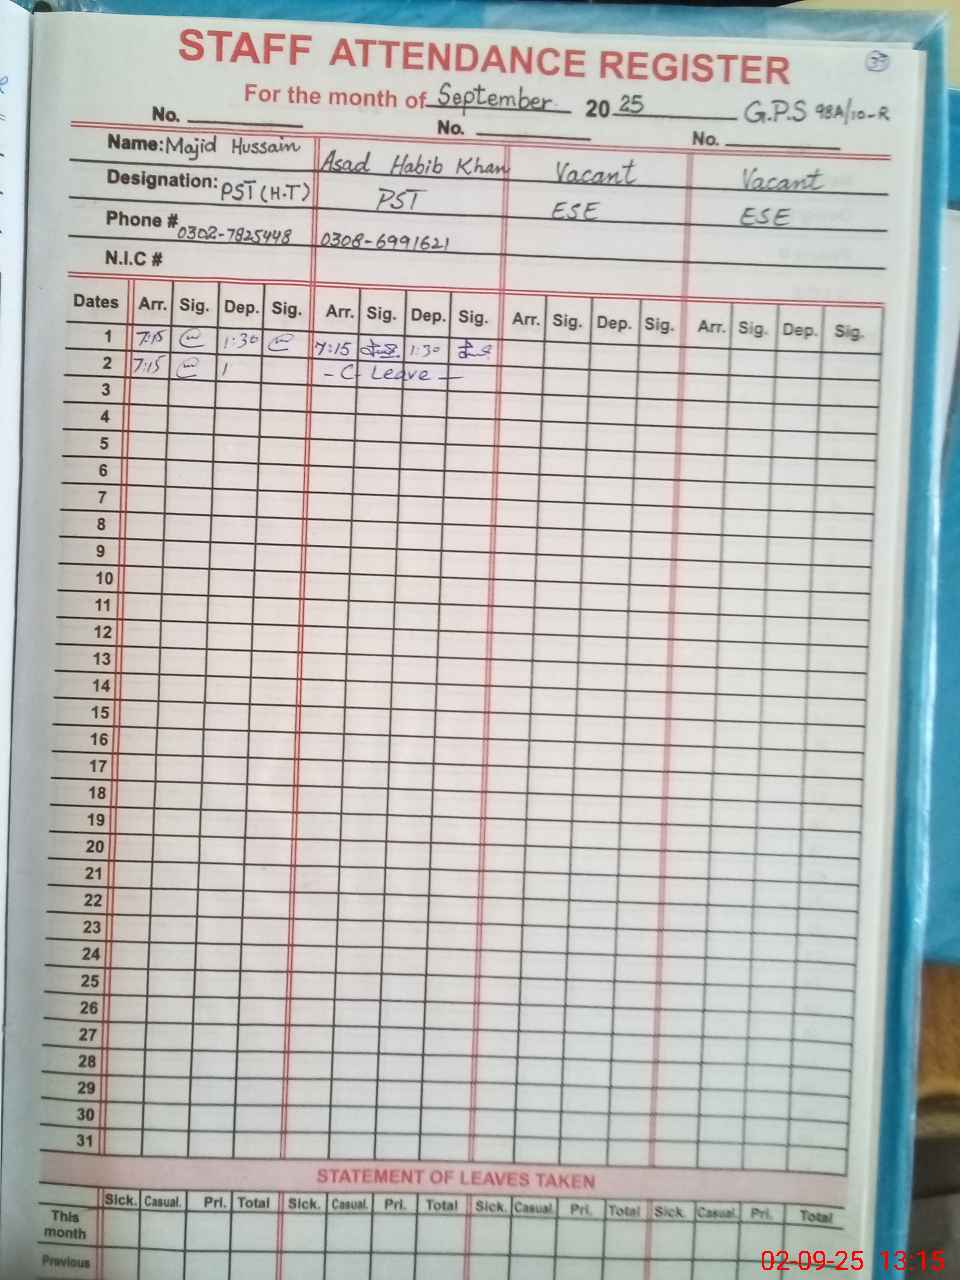 STAFF ATTENDANCE REGISTER 35
For the month of September 2025 G.P.S 98A/10-R
No. No. No.
Name: Majid Hussain Asad Habib Khan Vacant Vacant
Designation: PST (H.T) PST ESE ESE
Phone # 0302-7825448 0308-6991621
N.I.C #
Dates Arr. Sig. Dep. Sig. Arr. Sig. Dep. Sig. Arr. Sig. Dep. Sig. Arr. Sig. Dep. Sig.
1 7:15 1:30 7:15 1:30
2 7:15 1 - C- Leave -
3
4
5
6
7
8
9
10
11
12
13
14
15
16
17
18
19
20
21
22
23
24
25
26
27
28
29
30
31
STATEMENT OF LEAVES TAKEN
Sick. Casual. Pri. Total Sick. Casual. Pri. Total Sick. Casual. Pri. Total Sick. Casual. Pri. Total
This
month
Previous
02-09-25 13:15